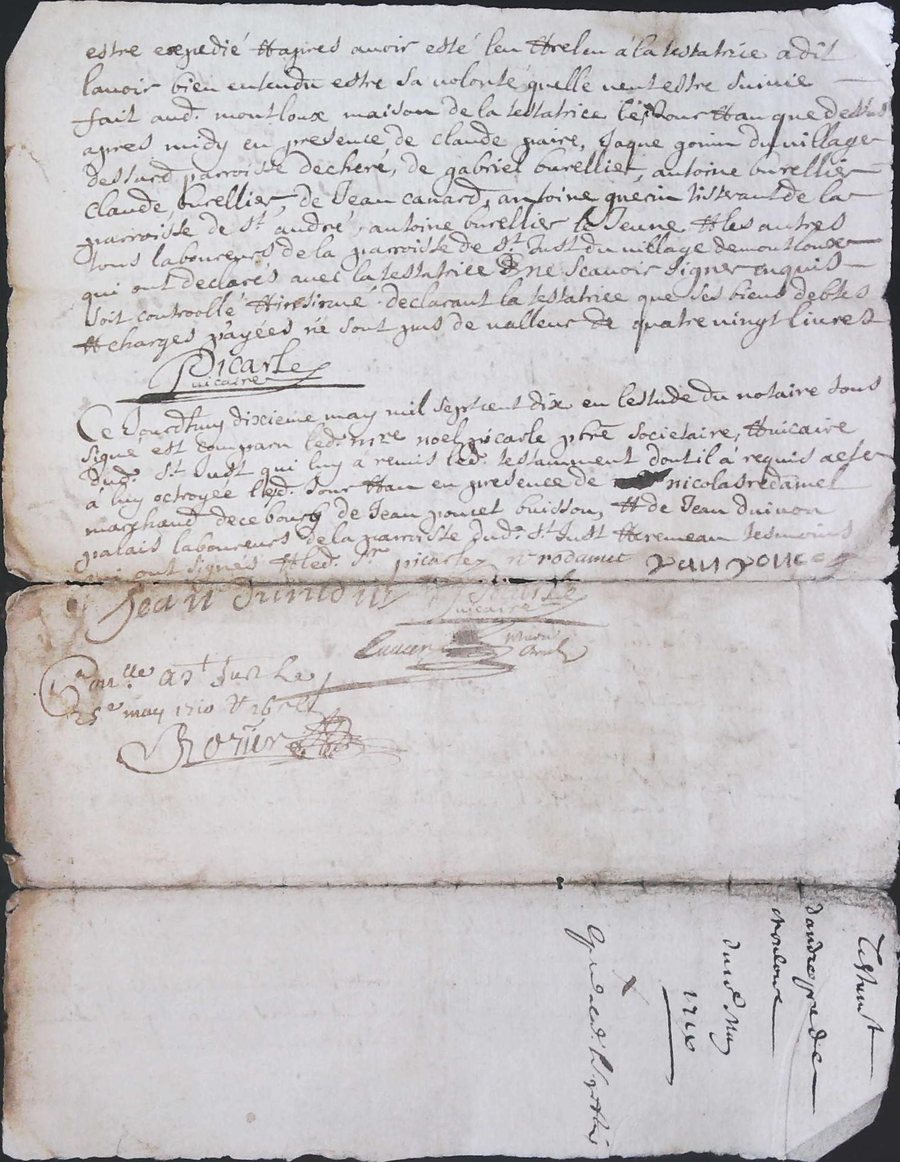 estre expedié & apres avoir esté leu & releu à la testatrice a dit
lavoir bien entendu estre sa volonté quelle veut estre suivie
fait aud. montloux maison de la testatrice les jour & an que dessus
apres midy en presence de claude paire, Jaque gonin du village
dessard parroisse dechere, de gabriel burellier, antoine burellier
claude burellier, de Jean canard, antoine querin tisserant de la
parroisse de St andré, antoine burellier le Jeune & les autres
tous laboureurs de la parroisse de St Just du village de montloux
qui ont declarés avec la testatrice ne scavoir signer enquis
soit controollé & insinué declarant la testatrice que ses biens debtes
& charges payées ne sont pas de valleur de quatre vingt livres
Picarle
vicaire
Ce Jourdhuy dixieme may mil sept cent dix en lestude du notaire sous
signé est comparu led. mre noel picarle pbre societaire, & vicaire
dud. St Just qui luy à remis led. testamment dont il à requis acte
à luy octroyee lesd. Jour & an en presence de nicolas redamet
marchand de ce bourg de Jean poncet buisson, & de Jean duivon
palais laboureurs de la parroisse dud. St Just & tesmoins
qui ont signés & led. Sr picarle n rodamet Jean ponce
Jean Picarle
vicaire
a St Just Le
25e may 1710
Testamt
may
1710